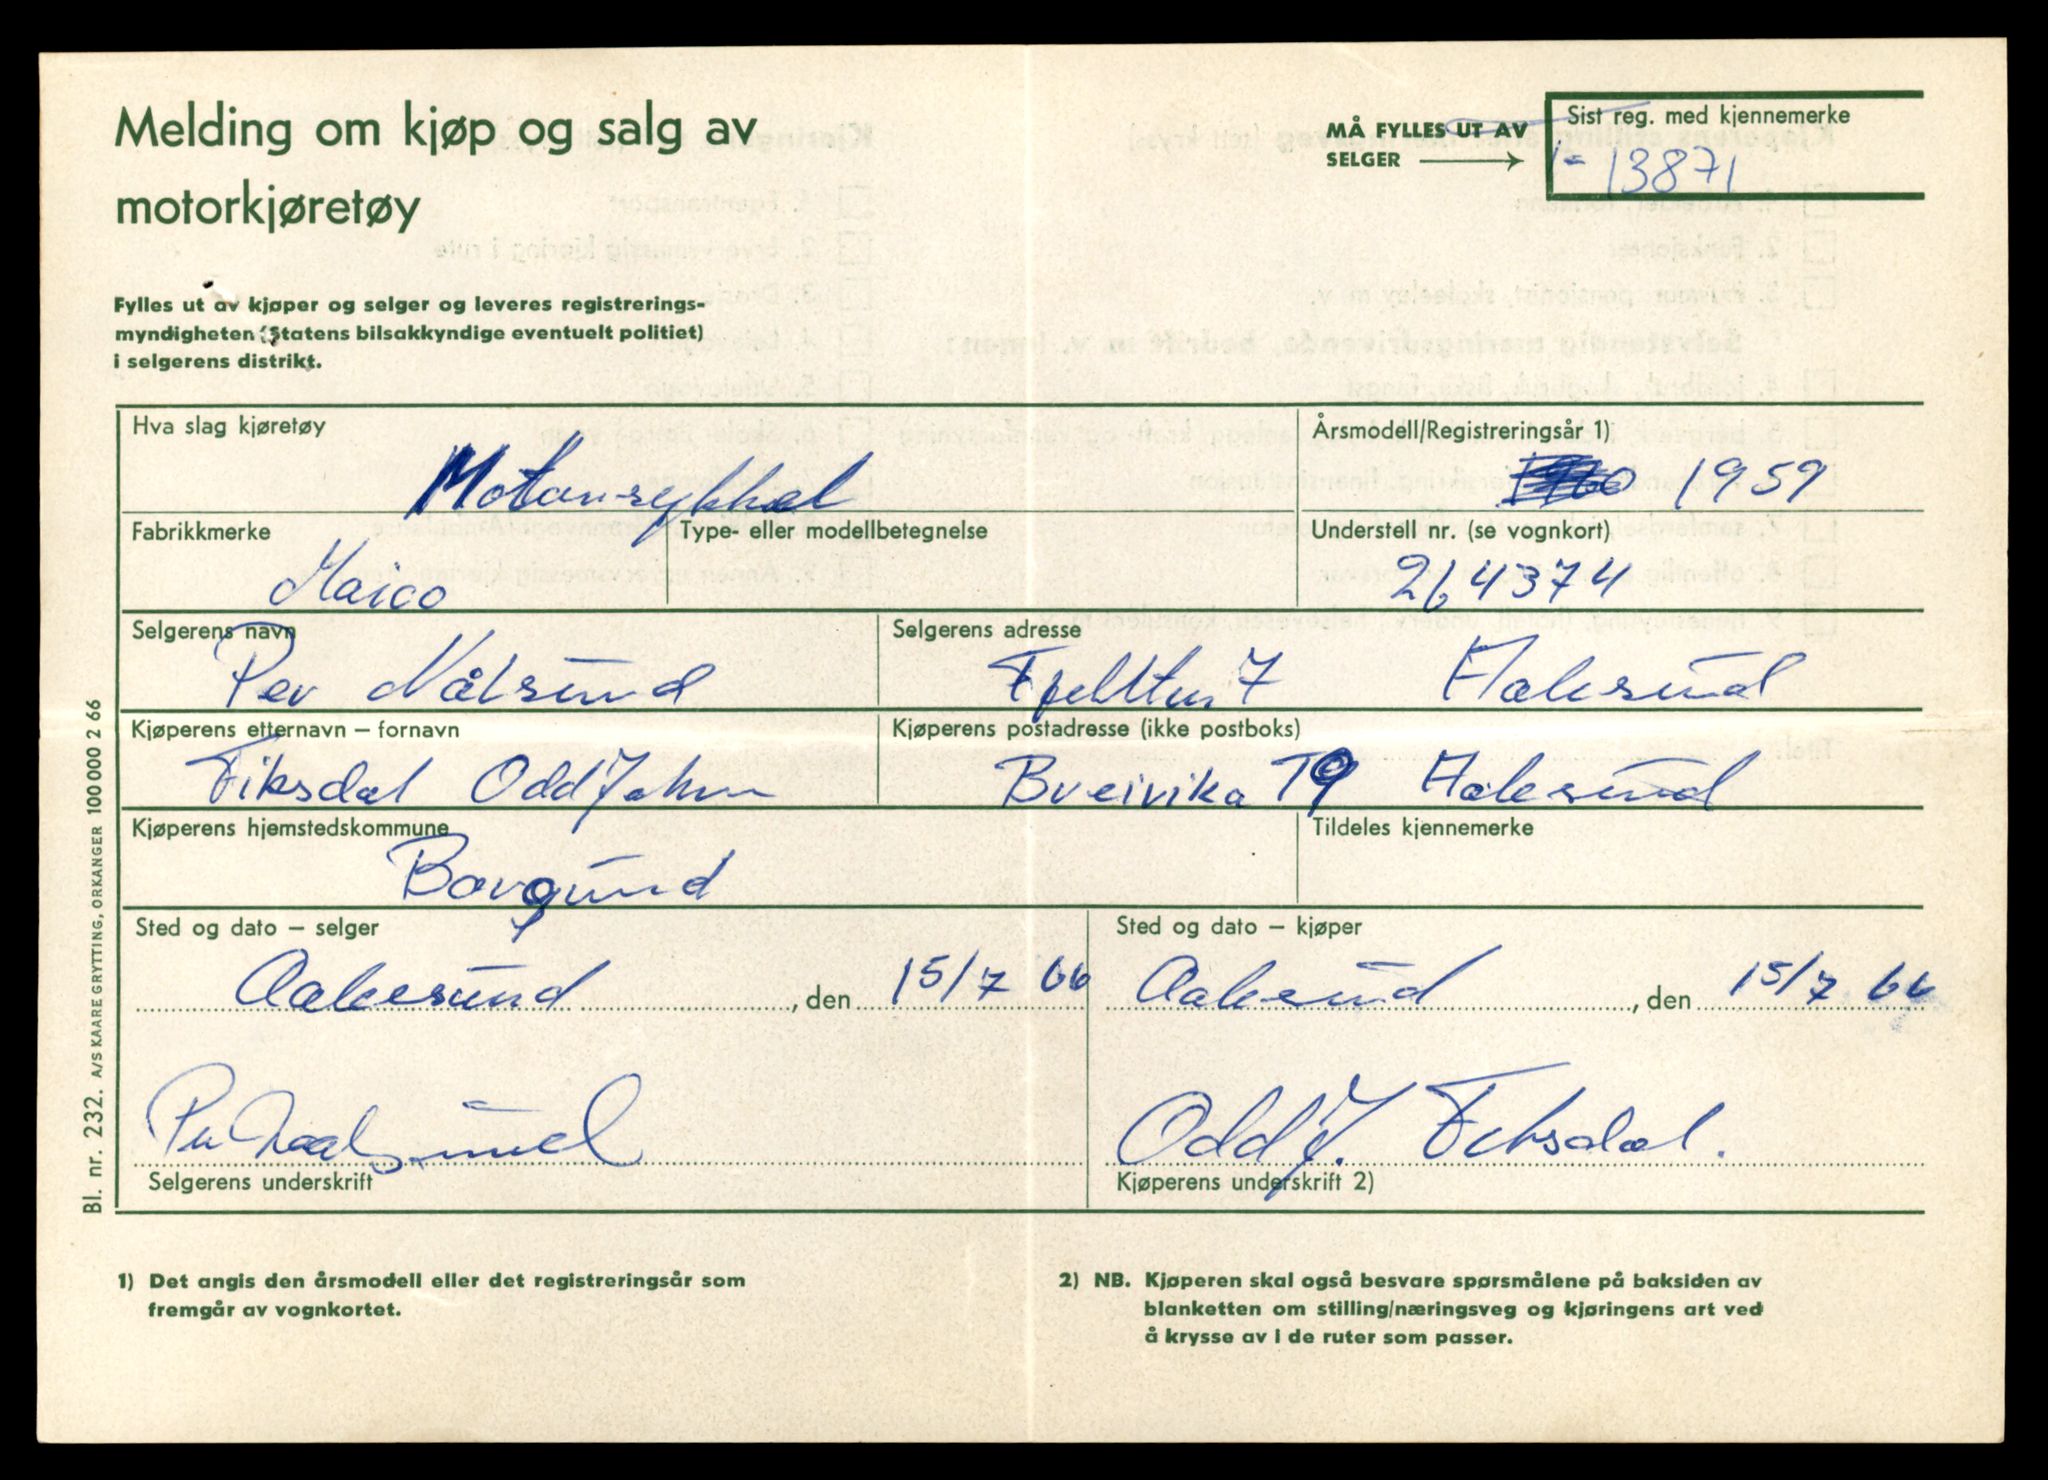 Melding om kjøp og salg av
motorkjøretøy
MÅ FYLLES UT AV
SELGER
Sist reg. med kjennemerke
13871
Fylles ut av kjøper og selger og leveres registrerings-
myndigheten (Statens bilsakkyndige eventuelt politiet)
i selgerens distrikt.
Hva slag kjøretøy
Motorsykkel
Årsmodell/Registreringsår 1)
1959
Fabrikkmerke
Maico
Type- eller modellbetegnelse
Understell nr. (se vognkort)
264374
Selgerens navn
Per Nålsund
Selgerens adresse
Fjelltun 7 Aalesund
Kjøperens etternavn – fornavn
Fiksdal Odd John
Kjøperens postadresse (ikke postboks)
Breivika T9 Aalesund
Kjøperens hjemstedskommune
Borgund
Tildeles kjennemerke
Sted og dato – selger
Aalesund, den 15/7 66
Sted og dato – kjøper
Aalesund, den 15/7 66
Per Naalsund
Selgerens underskrift
Odd J. Fiksdal.
Kjøperens underskrift 2)
1) Det angis den årsmodell eller det registreringsår som
fremgår av vognkortet.
2) NB. Kjøperen skal også besvare spørsmålene på baksiden av
blanketten om stilling/næringsveg og kjøringens art ved
å krysse av i de ruter som passer.
Bl. nr. 232. A/S KAARE GRYTTING, ORKANGER 100 000 2 66